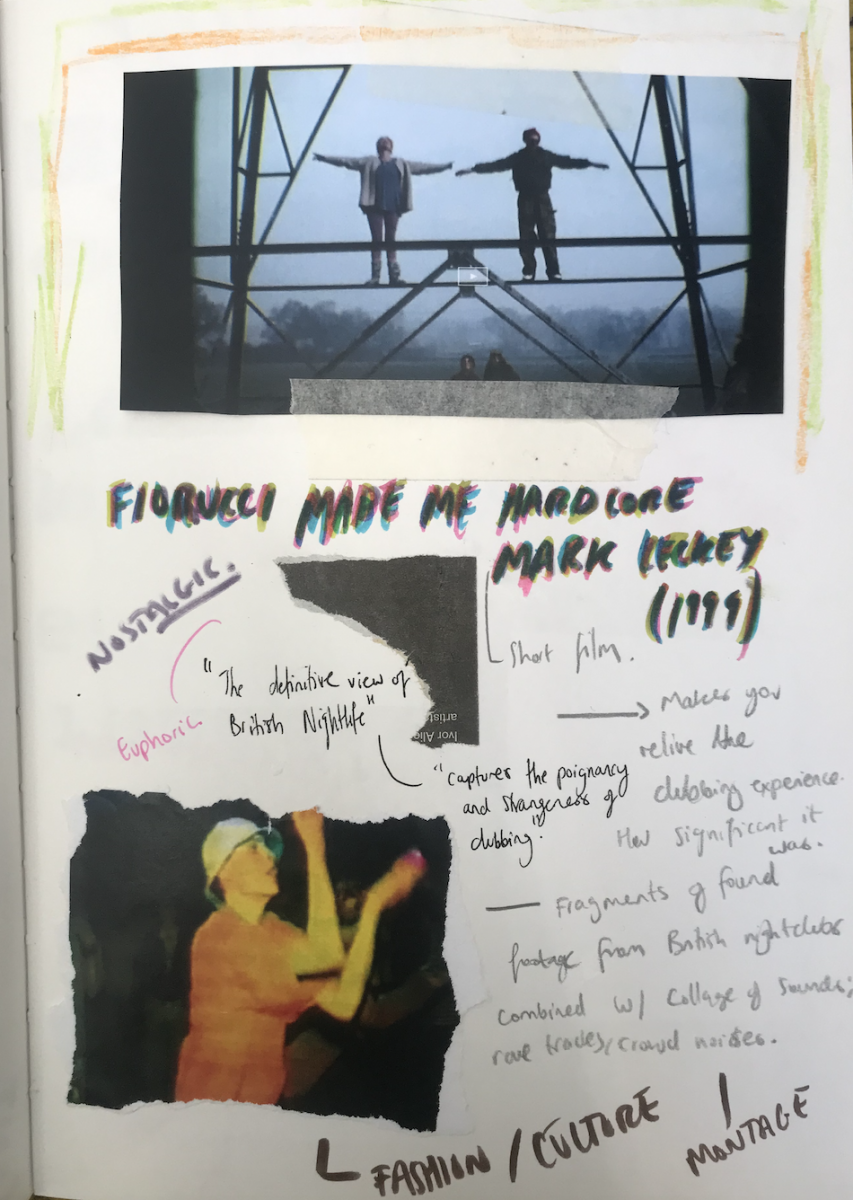 FIORUCCI MADE ME HARDCORE
MARK LECKEY
(1999)
NOSTALGIC.
Short film.
"The definitive view of
British Nightlife"
Euphoric
artist
Ivor Alle
Makes you
relive the
clubbing experience.
How significant it
was.
"captures the poignancy
and strangeness of
clubbing."
Fragments of found
footage from British nightclubs
combined w/ collage of sounds;
rave tracks/crowd noises.
FASHION / CULTURE
MONTAGE